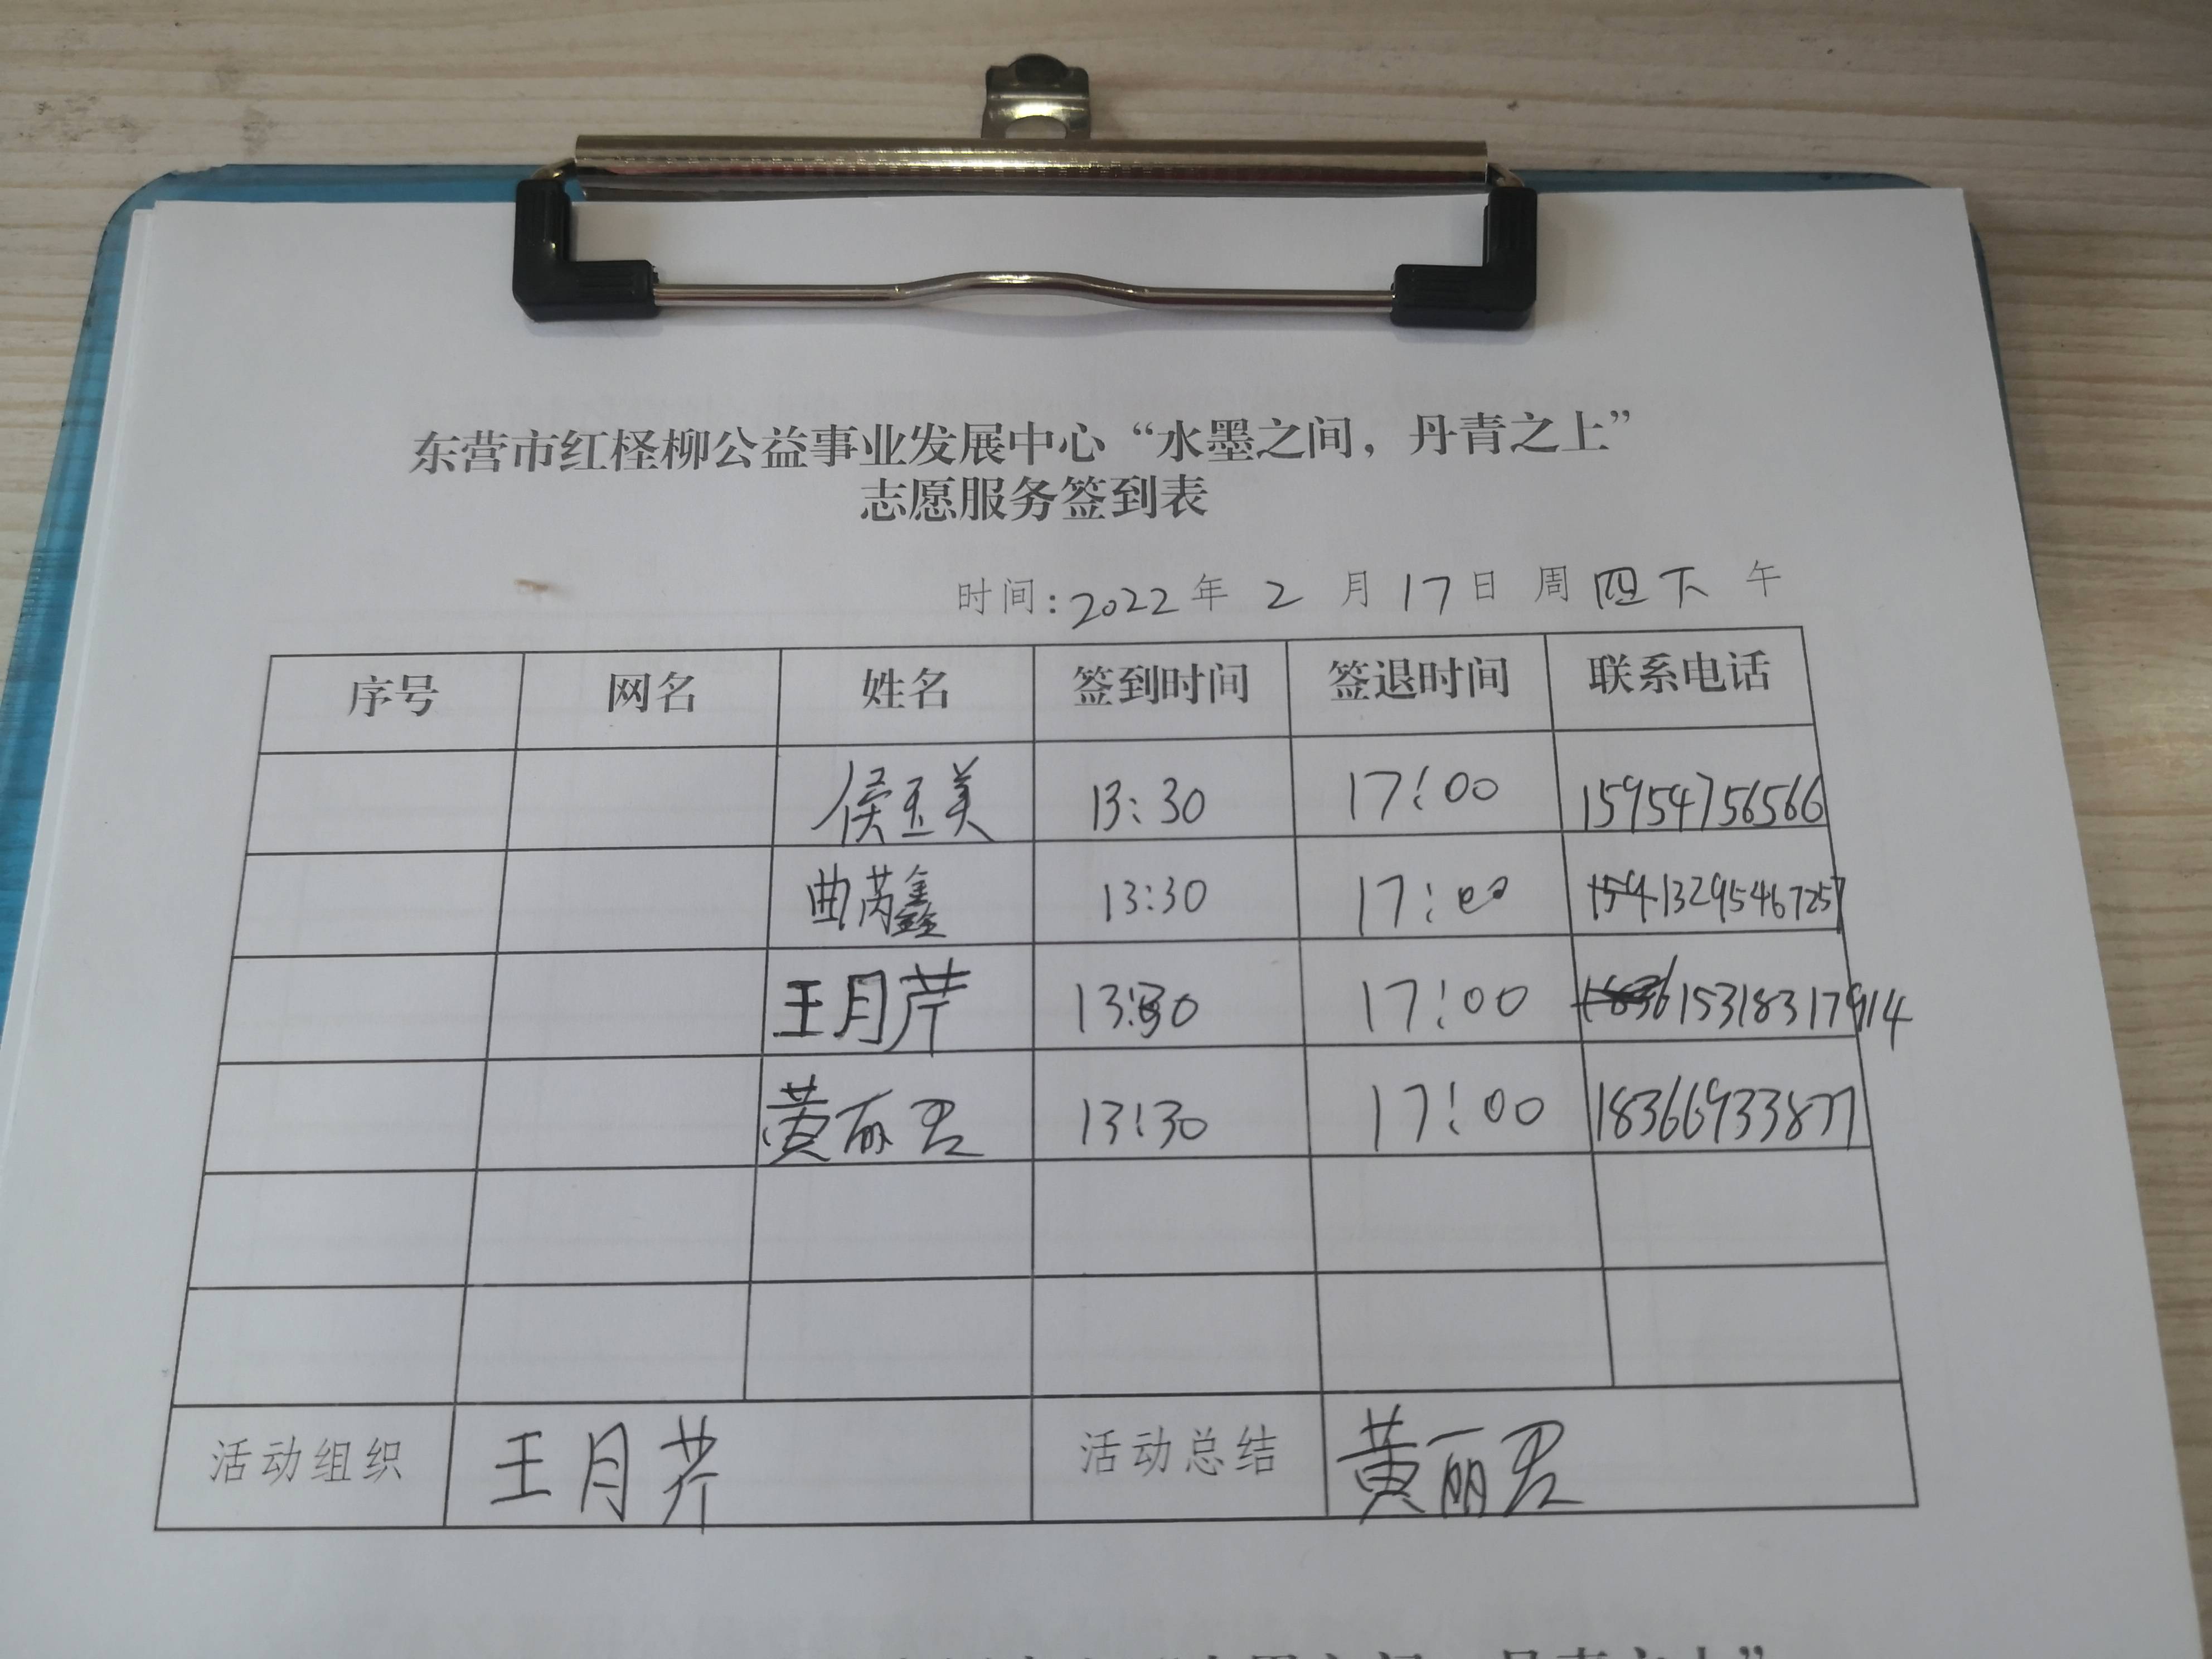 东营市红柽柳公益事业发展中心“水墨之间，丹青之上”
志愿服务签到表
时间：2022年 2 月 17日 周 四下 午
序号 网名 姓名 签到时间 签退时间 联系电话
侯玉美 13:30 17:00 15954756566
曲芮鑫 13:30 17:00 13295467257
王月芹 13:30 17:00 15318317914
黄丽君 13:30 17:00 18366933877
活动组织 王月芹 活动总结 黄丽君